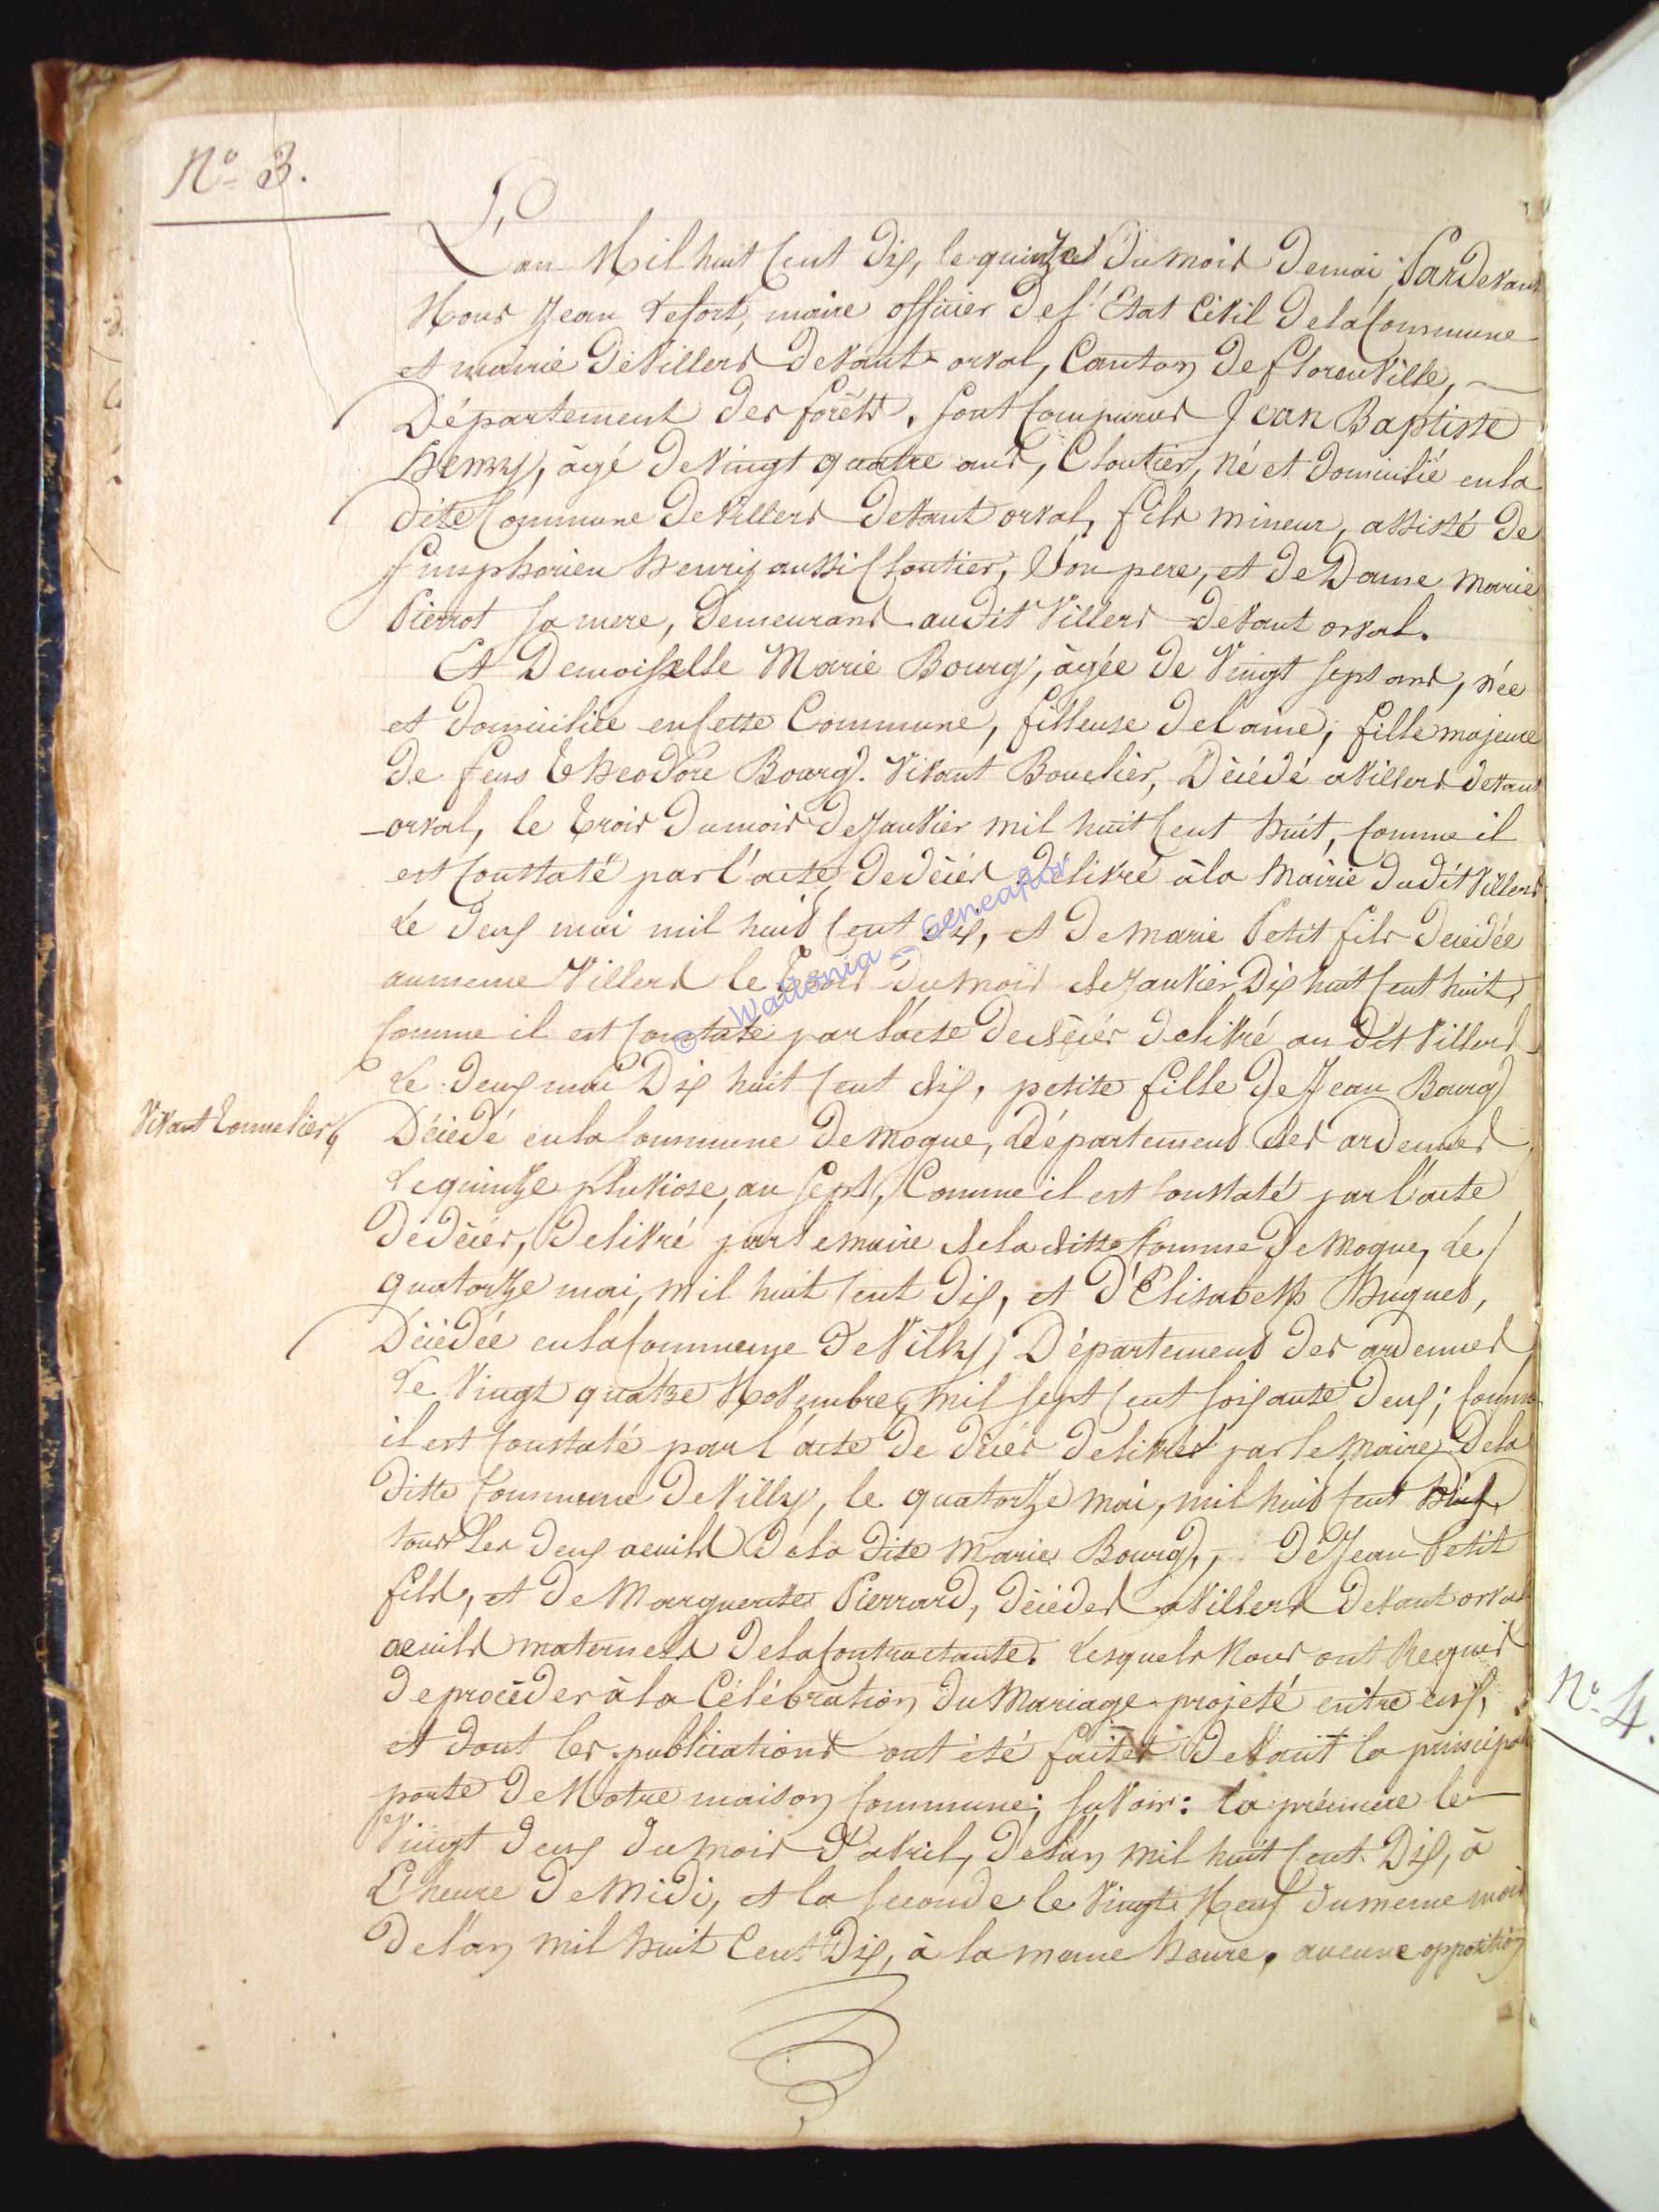 N° 3.
L'an Mil huit Cent Dix, le quinze Du mois De mai ; Par Devant
Nous Jean Lefort, maire officier De l'Etat Civil De la Commune
et mairie De Villers Devant-orval, Canton De florenville,
Département Des forêts. sont Comparus Jean Baptiste
henry, àgé De vingt quatre ans, Cloutier, né et Domicilié en la
dite Commune De Villers Devant orval, fils mineur, assisté De
simphorien henrij aussi Cloutier, Son pere, et De Dame marie
Pierrot sa mere, Demeurans audit Villers Devant orval.
Et Demoiselle Marie Bourg, àgée De Vingt sept ans, née
et Domiciliée en Cette Commune, filleuse De laine, fille majeure
De feus Theodore Bourg. Vivant Bouclier, Décédé a Villers Devant
-orval, le trois Du mois De janvier mil huit Cent huit, Comme il
est Constaté par l'acte De décés Délivré à la Mairie Dudit Villers
Le Deux mai mil huit Cent Dix, et De marie Petit fils Decédée
au meme Villers le Trois Du mois De janvier Dix huit Cent huit,
Comme il est Constaté par l'acte De décés Delivré au Dit Villers
Le Deux mai Dix huit Cent dix, petite fille De Jean Bourg
Vivant tonnelier
Décédé en la Commune De mogue, Département des ardennes
Le quinze pluviose, an sept, Comme il est Constaté par l'acte
De décés, Delivré par le maire de la ditte Comme De Mogue, Le
quatorze mai, mil huit Cent Dix, et D'Elisabeth Huques,
Décédée en la Commune De Villy, Département Des ardennes
Le Vingt quatre Novembre, mil sept Cent soixante Deux ; Comme
il est Constaté par l'acte De décés Delivré par le maire De la
Ditte Commune De Villy, le quatorze mai, mil huit Cent Dix,
tous les Deux aeuils De la Dite Marie Bourg, De Jean Petit
fils, et De Marguerite Pierrard, Décédés a Villers Devant orval
aeuils maternels De la Contractante. Lesquels Nous ont Requis
De procéder à la Célébration Du Mariage projeté entre eux,
et Dont les publications ont été faites Devant la principale
porte De Notre maison Commune ; savoir : La prémière le
Vingt Deux Du mois D'avril, De l'an mil huit Cent Dix, à
L'heure De Midi, et la seconde le Vingt Neuf Du meme mois
De l'an mil huit Cent Dix, à la meme heure, aucune opposition
N° 4.
© Wallonia - Geneafor